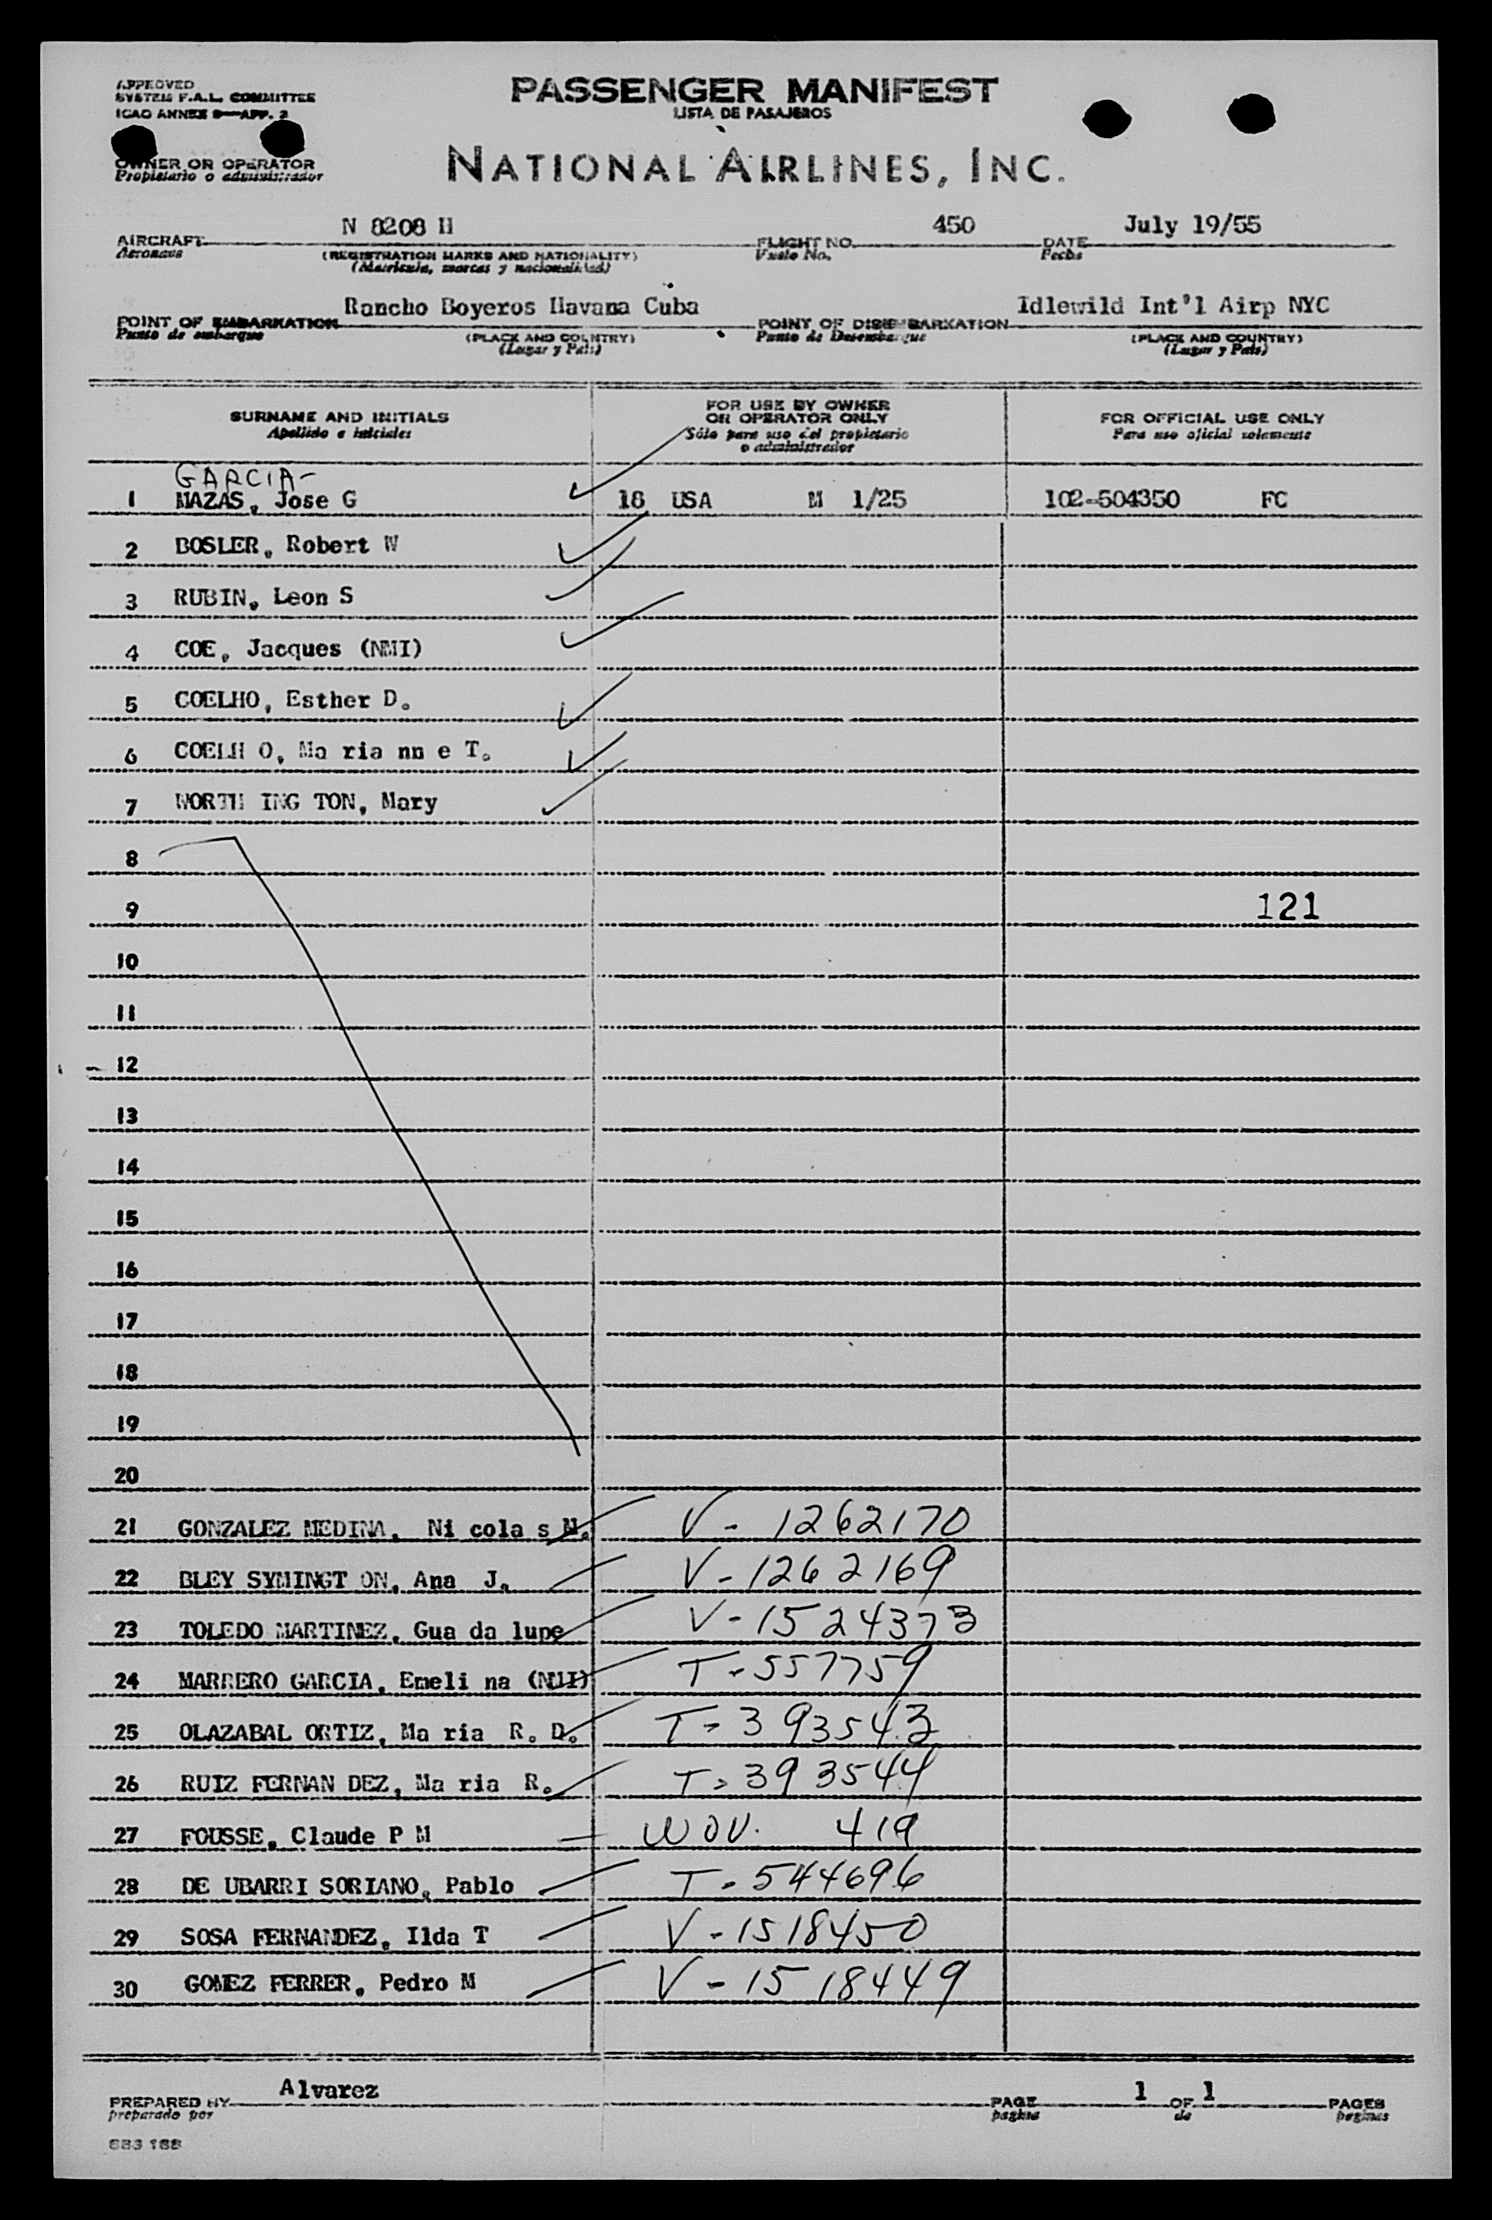 APPROVED
SYSTEM F.A.L. COMMITTEE
ICAO ANNEX 9—APP. 2
PASSENGER MANIFEST
LISTA DE PASAJEROS
OWNER OR OPERATOR
Propietario o administrador
NATIONAL AIRLINES, INC.
AIRCRAFT N 8208 H FLIGHT NO. 450 DATE July 19/55
Aeronave (REGISTRATION MARKS AND NATIONALITY) Vuelo No. Fecha
(Matricula, marcas y nacionalidad)
POINT OF EMBARKATION Rancho Boyeros Havana Cuba POINT OF DISEMBARKATION Idlewild Int'l Airp NYC
Punto de embarque (PLACE AND COUNTRY) Punto de Desembarque (PLACE AND COUNTRY)
(Lugar y País) (Lugar y País)
SURNAME AND INITIALS FOR USE BY OWNER OR OPERATOR ONLY FOR OFFICIAL USE ONLY
Apellido e iniciales Sólo para uso del propietario o administrador Para uso oficial solamente
GARCIA-
1 MAZAS, Jose G 18 USA M 1/25 102-504350 FC
2 BOSLER, Robert W
3 RUBIN, Leon S
4 COE, Jacques (NMI)
5 COELHO, Esther D.
6 COELH O, Ma ria nn e T.
7 WORTH ING TON, Mary
8
9 121
10
11
12
13
14
15
16
17
18
19
20
21 GONZALEZ MEDINA, Ni cola s M. V - 1262170
22 BLEY SYMINGT ON, Ana J. V - 1262169
23 TOLEDO MARTINEZ, Gua da lupe V - 1524373
24 MARRERO GARCIA, Emeli na (NMI) T - 557759
25 OLAZABAL ORTIZ, Ma ria R. D. T - 393543
26 RUIZ FERNAN DEZ, Ma ria R. T - 393544
27 FOUSSE, Claude P M WOV. 419
28 DE UBARRI SORIANO, Pablo T - 544696
29 SOSA FERNANDEZ, Ilda T V - 1518450
30 GOMEZ FERRER, Pedro M V - 1518449
PREPARED BY Alvarez PAGE 1 OF 1 PAGES
preparado por pagina de paginas